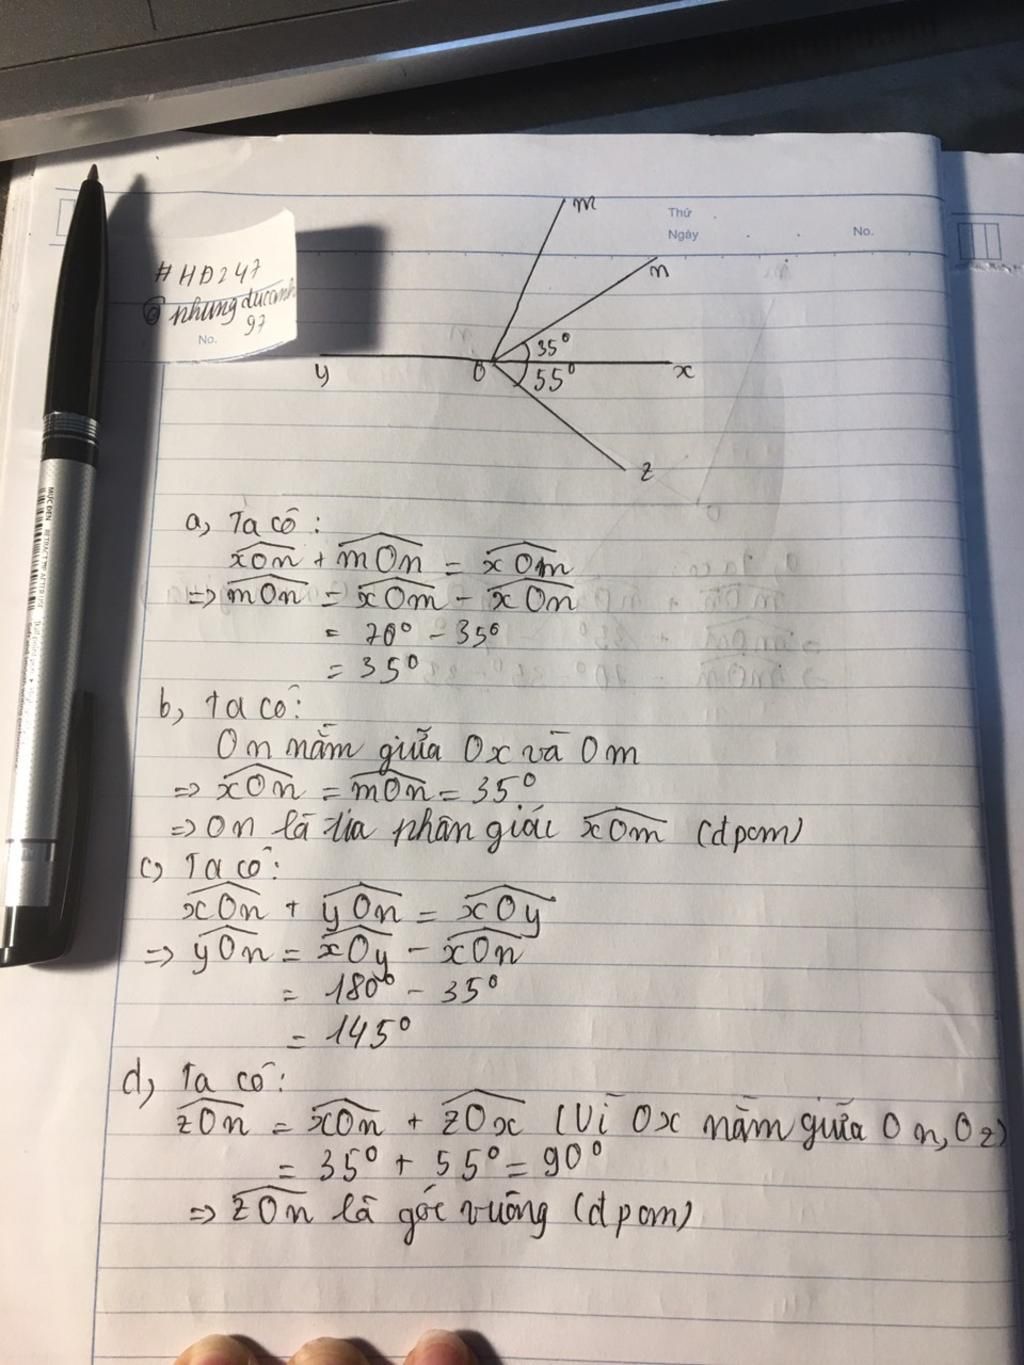 # HD247
@ nhungducanh
97
No.
Thứ
Ngày
No.
m
n
35°
y
O
55°
x
z
a, Ta có:
xOn + mOn = xOm
=> mOn = xOm - xOn
= 70° - 35°
= 35°
b, Ta có:
On nằm giữa Ox và Om
=> xOn = mOn = 35°
=> On là tia phân giác xOm (đpcm)
c, Ta có:
xOn + yOn = xOy
=> yOn = xOy - xOn
= 180° - 35°
= 145°
d, Ta có:
zOn = xOn + zOx (Vì Ox nằm giữa On, Oz)
= 35° + 55° = 90°
=> zOn là góc vuông (đpcm)